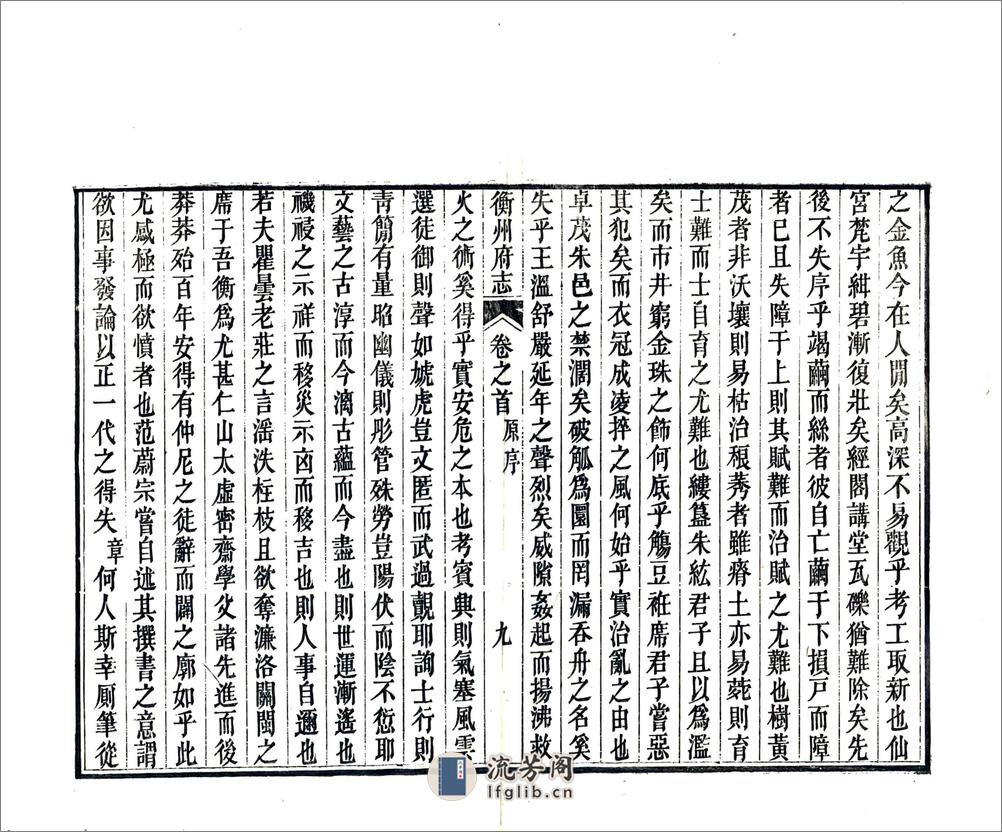 之金魚今在人間矣高深不易觀乎考工取新也仙
宮梵宇紺碧漸復壯矣經閣講堂瓦礫猶難除矣先
後不失序乎竭繭而絲者彼自亡繭于下損戸而障
者已且失障于上則其賦難而治賦之尤難也樹黃
茂者非沃壤則易枯治稂莠者雖瘠土亦易薨則育
士難而士自育之尤難也縷簋朱紘君子且以爲濫
矣而市井窮金珠之飾何底乎觴豆袵席君子嘗惡
其犯矣而衣冠成凌捽之風何始乎實治亂之由也
卓茂朱邑之禁濶矣破觚爲圜而罔漏吞舟之名奚
失乎王溫舒嚴延年之聲烈矣威隙姦起而揚沸救
衡州府志 卷之首 原序 九
火之術奚得乎實安危之本也考賓興則氣塞風雲
選徒御則聲如虓虎豈文匿而武過覿耶詢士行則
靑簡有量昭幽儀則彤管殊勞豈陽伏而陰不愆耶
文藝之古淳而今漓古蘊而今盡也則世運漸遙也
禨祲之示祥而移災示凶而移吉也則人事自邇也
若夫瞿曇老莊之言滛泆枉枝且欲奪濂洛關閩之
席于吾衡爲尤甚仁山太虛密齋學父諸先進而後
莽莽殆百年安得有仲尼之徒辭而闢之廓如乎此
尤感極而欲憤者也范蔚宗嘗自述其撰書之意謂
欲因事發論以正一代之得失章何人斯幸厠筆從
流芳阁
lfglib.cn